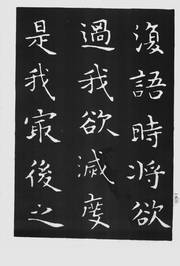 復語時将欲
過我欲滅度
是我㝡後之